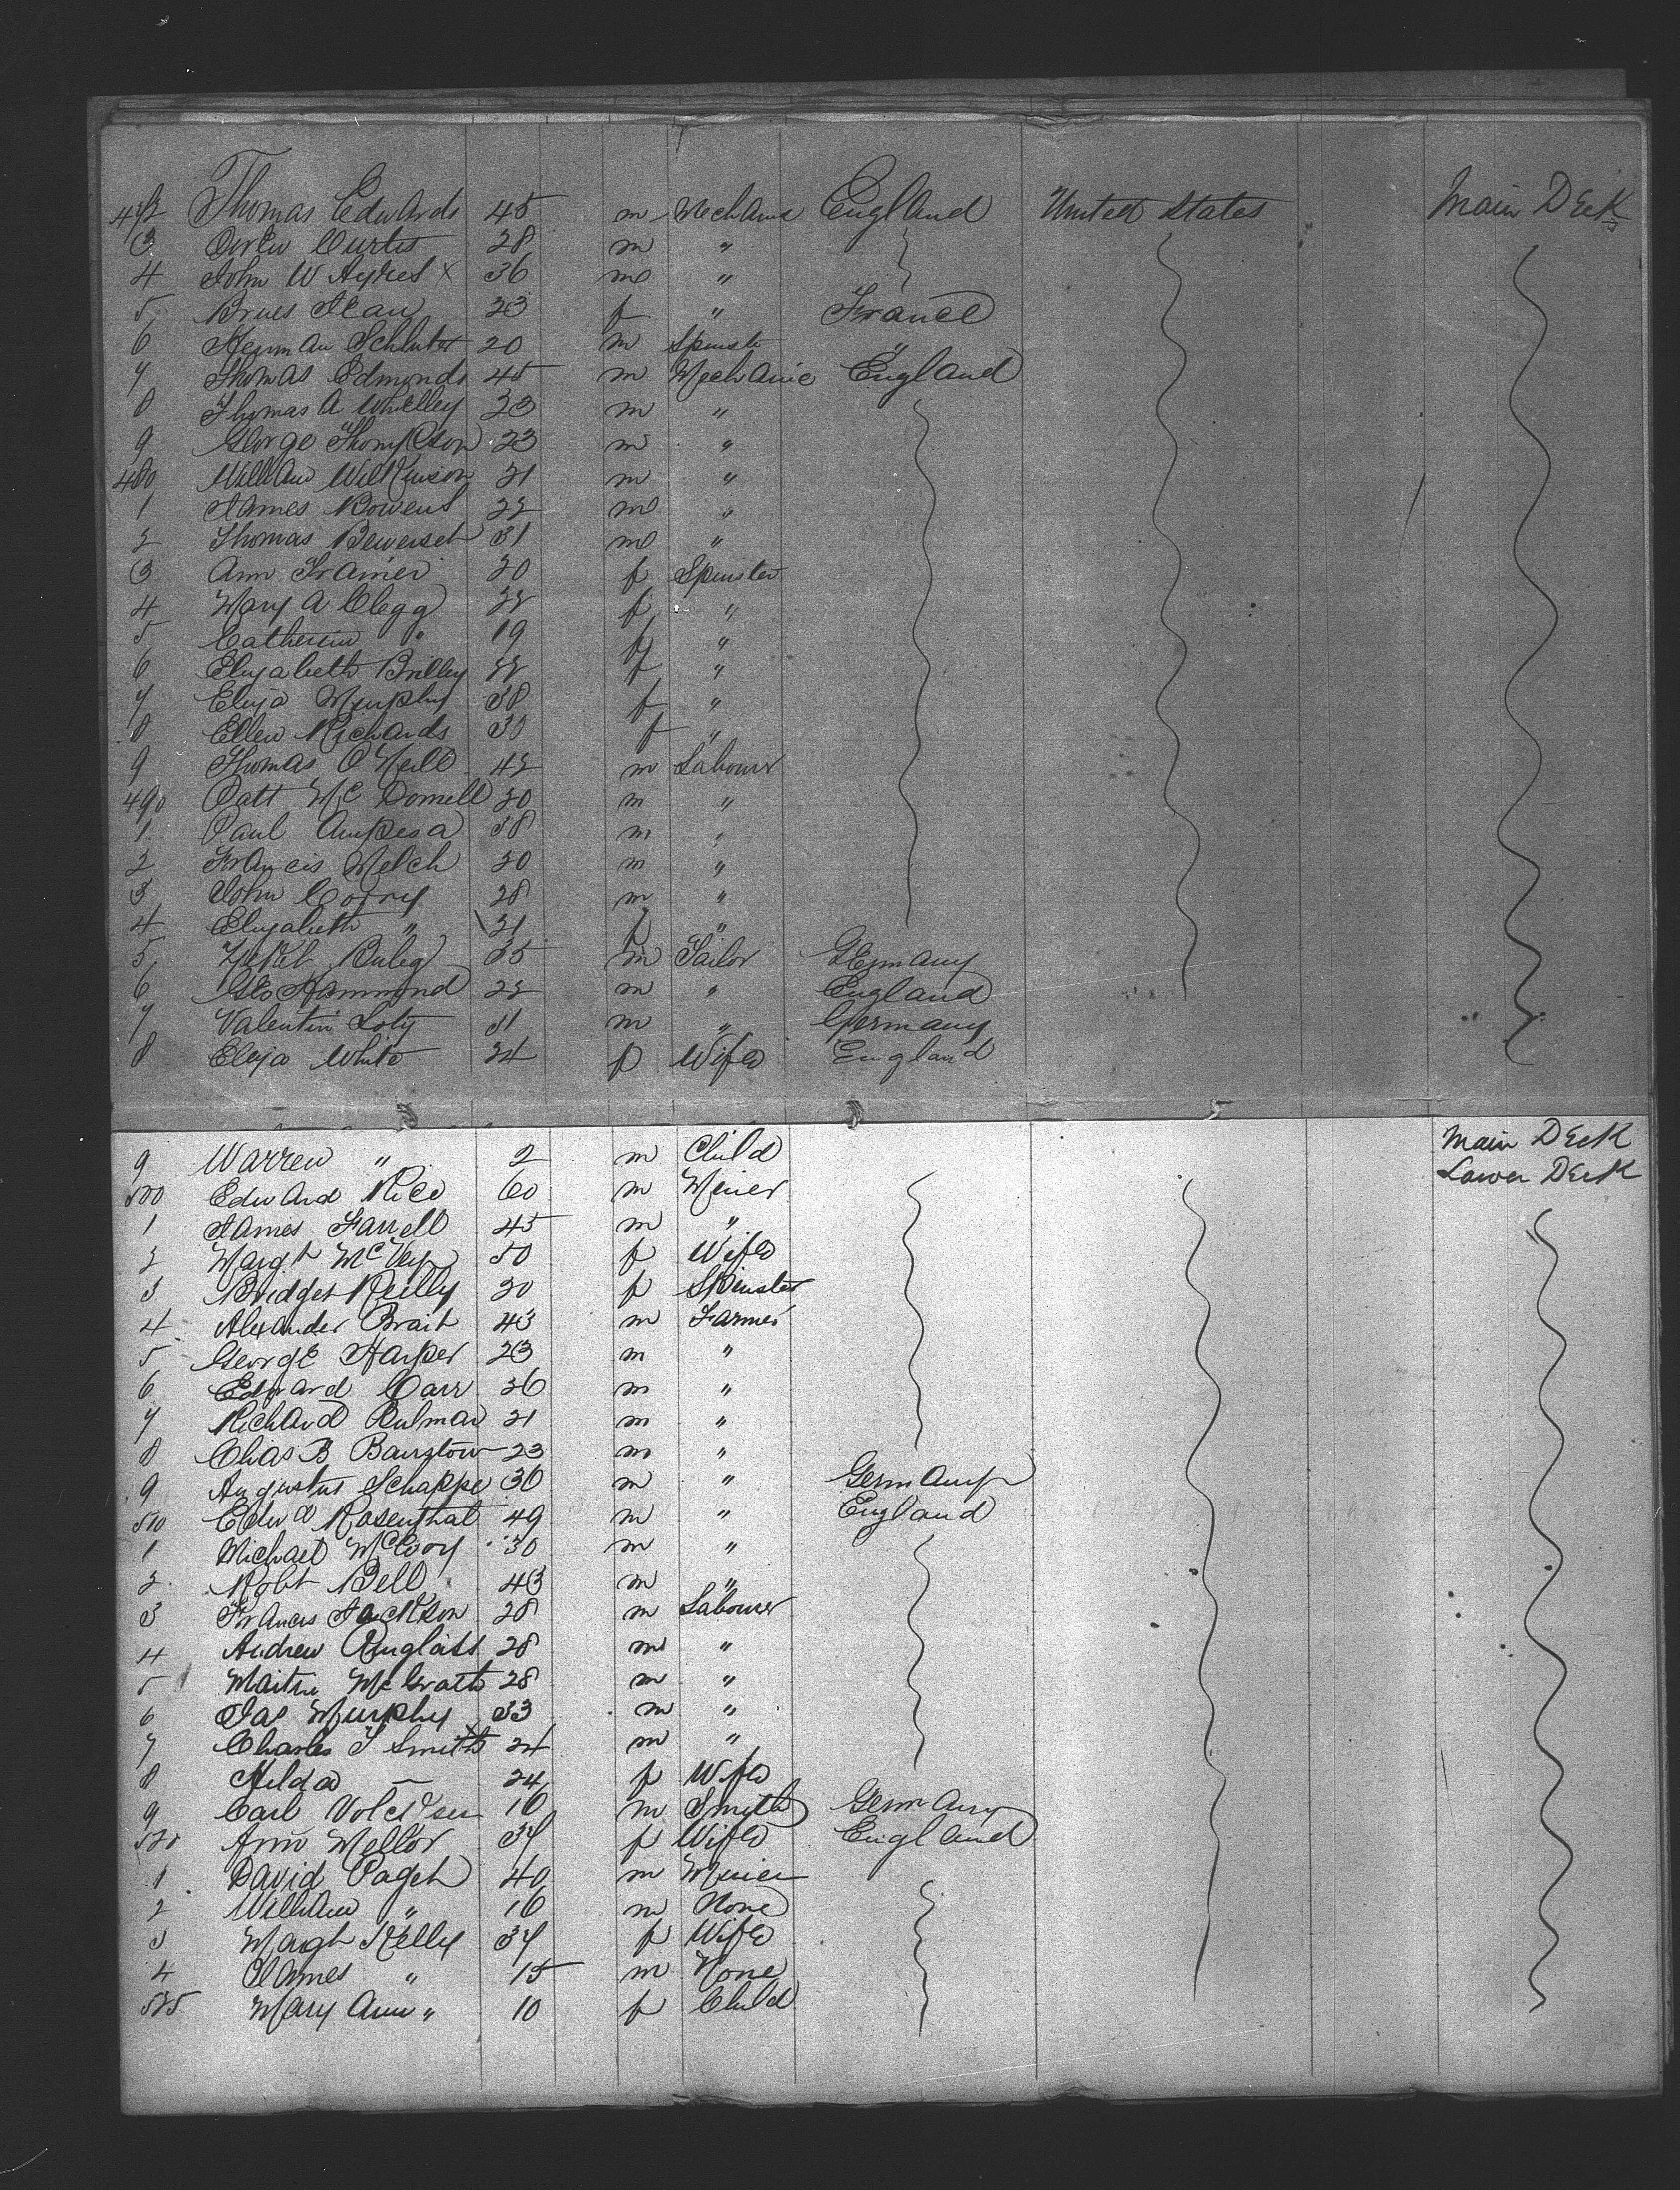 472 Thomas Edwards 45 m Mechanic England United States Main Deck
3 Owen Curtis 28 m "
4 John W Ayres x 36 m "
5 Brues Jean 23 f " France
6 Herman Schluter 20 m Spinster "
7 Thomas Edmonds 45 m Mechanic England
8 Thomas A Whelley 23 m "
9 George Thompson 23 m "
480 William Wilkinson 21 m "
1 James Bowens 22 m "
2 Thomas 31 m "
3 Ann 20 f Spinster
4 Mary A Clegg 22 f "
5 Catherin " 19 f "
6 Elizabeth Brilley 22 f "
7 Eliza Murphy 38 f "
8 Ellen Richards 30 f "
9 Thomas O'Neill 42 m Labourer
490 Patt Mc Donnell 20 m "
1 Paul 38 m "
2 Francis Welch 20 m "
3 John 28 m "
4 Elizabeth " 21 f "
5 35 m Tailor Germany
6 Geo Hammond 22 m " England
7 Valentin Loty 31 m " Germany
8 Eliza White 24 f Wife England
9 Warren " 2 m Child Main Deck
500 Edward Rice 60 m Miner Lower Deck
1 James Farrell 45 m "
2 Margt McVey 50 f Wife
3 Bridget Reilly 20 f Spinster
4 Alexander Brait 43 m Farmer
5 George Harper 23 m "
6 Edward Carr 36 m "
7 Richard Bulman 21 m "
8 Chas B Barstow 23 m "
9 Augustus Schappe 30 m " Germany
510 Edwd Rosenthal 49 m " England
1 Michael McEvoy 30 m "
2 Robt Bell 43 m "
3 Francis Jackson 28 m Labourer
4 Andrew 28 m "
5 Martin McGrath 28 m "
6 Jas Murphy 33 m "
7 Charles J Smith 24 m "
8 Hilda — 24 f Wife
9 Carl 16 m Smyth Germany
520 Ann Mellor 37 f Wife England
1 David Paget 40 m Miner
2 William " 16 m None
3 Magt Kelly 37 f Wife
4 James " 15 m None
525 Mary Ann " 10 f Child